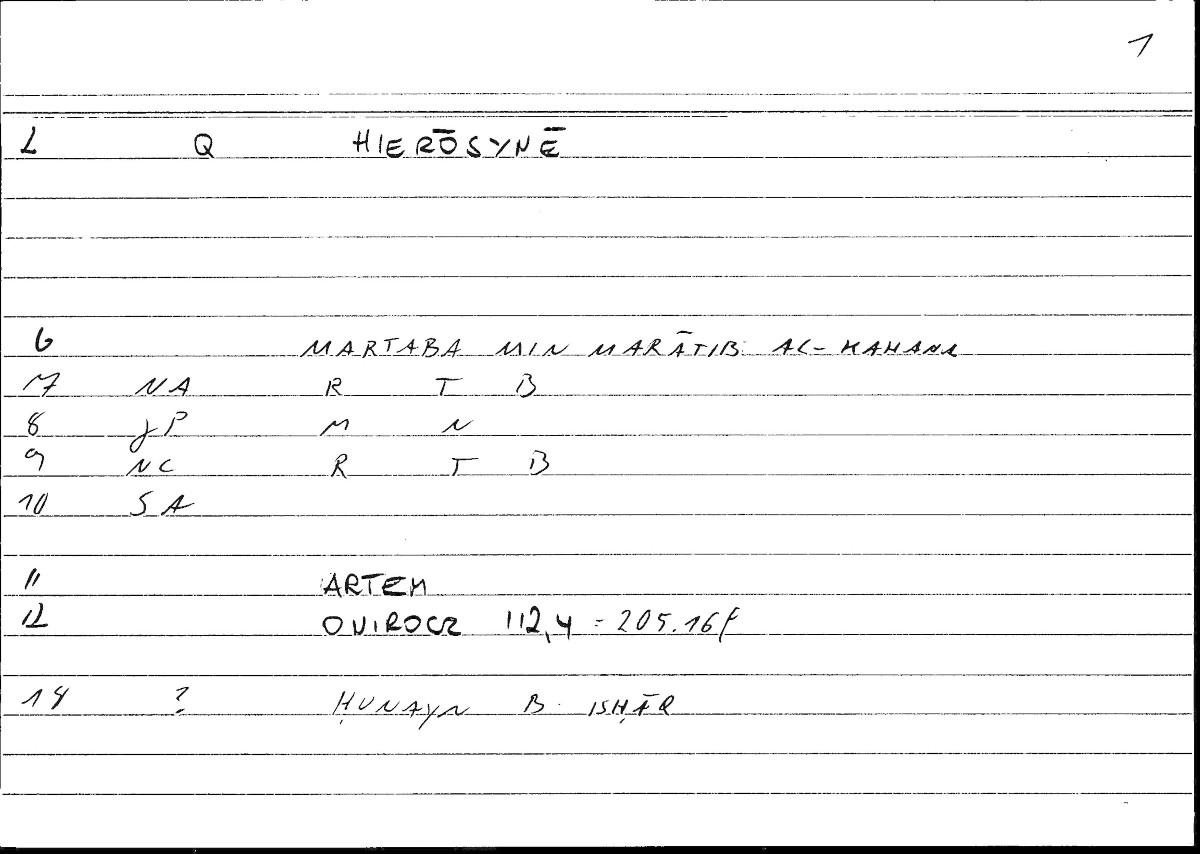 1
2 Q HIERŌSYNĒ
6 MARTABA MIN MARĀTIB AL-KAHANA
7 NA R T B
8 JP M N
9 NC R T B
10 SA
11 ARTEM
12 ONIROCR 112,4 = 205.16f
14 ? ḤUNAYN B. ISḤĀQ